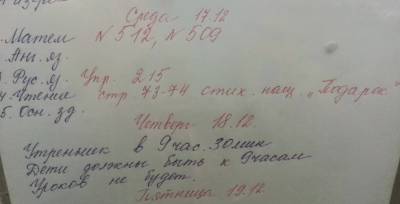 Среда 17.12
Матем N 512, N 509
Анг. яз.
Рус. яз. Упр. 215
4. Чтение стр. 73-74 стих. наш. "Подарок"
5. Осн. зд.
Четверг 18.12.
Утренник в 9 час. 30 мин
Дети должны быть к 9 часам
Уроков не будет.
Пятница 19.12